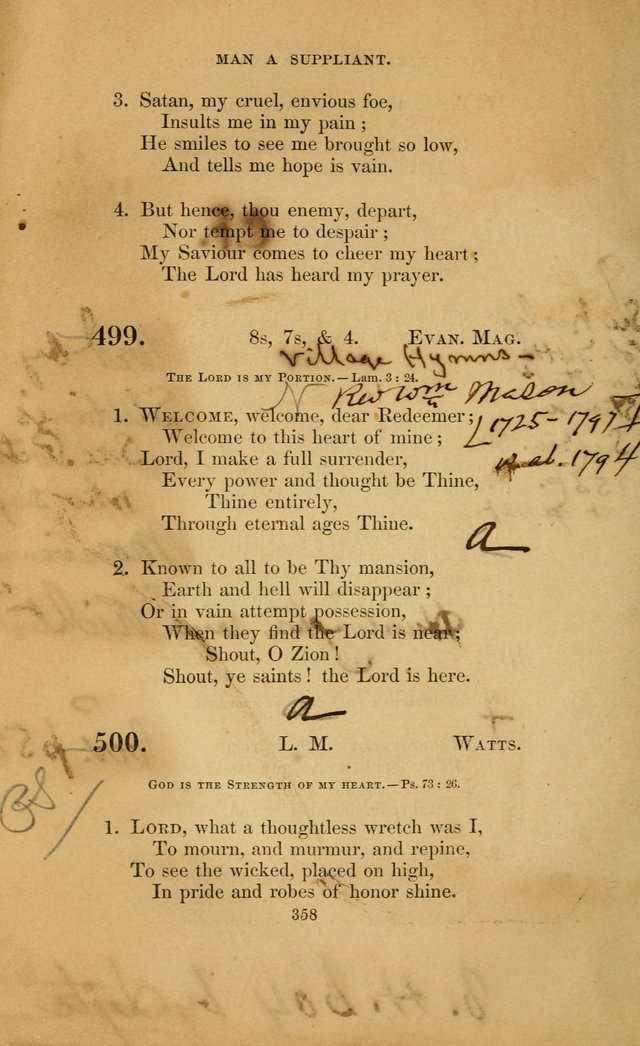 MAN A SUPPLIANT.
3. Satan, my cruel, envious foe,
Insults me in my pain ;
He smiles to see me brought so low,
And tells me hope is vain.
4. But hence, thou enemy, depart,
Nor tempt me to despair ;
My Saviour comes to cheer my heart ;
The Lord has heard my prayer.
499. 8s, 7s, & 4. Evan. Mag.
Village Hymns –
The Lord is my Portion.—Lam. 3 : 24.
Rev Wm Mason
1. Welcome, welcome, dear Redeemer ;
1725-1797
Welcome to this heart of mine ;
Lord, I make a full surrender,
al. 1794
Every power and thought be Thine,
Thine entirely,
Through eternal ages Thine.
a
2. Known to all to be Thy mansion,
Earth and hell will disappear ;
Or in vain attempt possession,
When they find the Lord is near ;
Shout, O Zion !
Shout, ye saints ! the Lord is here.
a
500. L. M. Watts.
God is the Strength of my heart.—Ps. 73 : 26.
1. Lord, what a thoughtless wretch was I,
To mourn, and murmur, and repine,
To see the wicked, placed on high,
In pride and robes of honor shine.
358